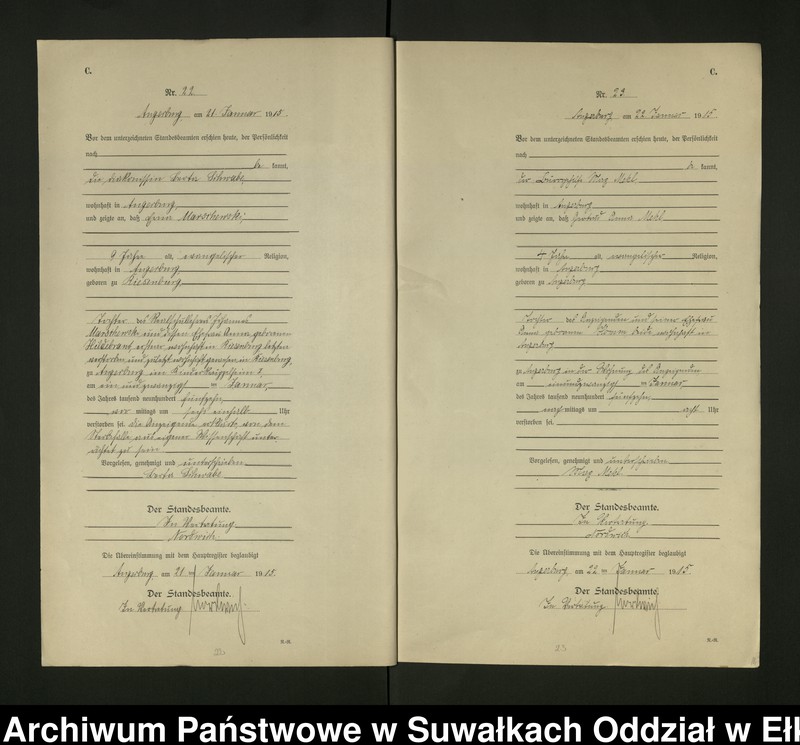 C.
Nr. 22
Angerburg am 21 Januar 1915.
Vor dem unterzeichneten Standesbeamten erschien heute, der Persönlichkeit
nach
be kannt,
die Diakonissin Berta Schwabe,
wohnhaft in Angerburg,
und zeigte an, daß Marschewski,
9 Jahre alt, evangelischer Religion,
wohnhaft in Angerburg
geboren zu Riesenburg,
Tochter des
Marschewski und dessen Ehefrau Anna, geborenen
Hildebrant, ersterer wohnhaft in Riesenburg, letztere
verstorben und zuletzt wohnhaft gewesen in Riesenburg,
zu Angerburg im
am ein und zwanzigsten Januar,
des Jahres tausend neunhundert fünfzehn
vor mittags um sechs einhalb Uhr
verstorben sei. Die Anzeigende erklärte, von dem
Sterbefalle aus eigener Wissenschaft unter
richtet zu sein.
Vorgelesen, genehmigt und unterschrieben
Berta Schwabe
Der Standesbeamte.
In Vertretung
Nordwich
Die Übereinstimmung mit dem Hauptregister beglaubigt
Angerburg am 21 ten Januar 1915.
Der Standesbeamte.
In Vertretung
C.
Nr. 23
Angerburg am 22 Januar 1915
Vor dem unterzeichneten Standesbeamten erschien heute, der Persönlichkeit
nach
be kannt,
der Max Mehl
wohnhaft in Angerburg
und zeigte an, daß Gertrud Anna Mehl
4 Jahre alt, evangelischer Religion,
wohnhaft in Angerburg
geboren zu Angerburg
Tochter des Anzeigenden und seiner Ehefrau
geborenen beide wohnhaft in
Angerburg
zu Angerburg in der Wohnung des Anzeigenden
am einundzwanzigsten Januar
des Jahres tausend neunhundert fünfzehn
nach mittags um acht Uhr
verstorben sei.
Vorgelesen, genehmigt und unterschrieben
Max Mehl
Der Standesbeamte.
In Vertretung
Nordwich
Die Übereinstimmung mit dem Hauptregister beglaubigt
Angerburg am 22 ten Januar 1915
Der Standesbeamte.
In Vertretung
23
Archiwum Państwowe w Suwałkach Oddział w Ełk